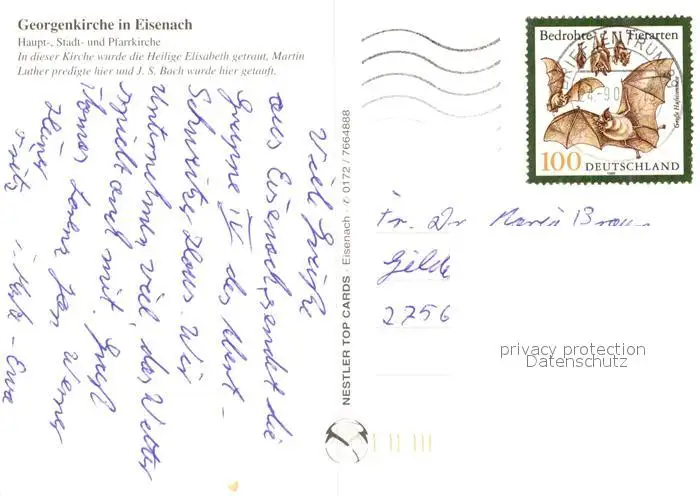 Georgenkirche in Eisenach
Haupt-, Stadt- und Pfarrkirche
In dieser Kirche wurde die Heilige Elisabeth getraut, Martin
Luther predigte hier und J. S. Bach wurde hier getauft.
Viele Grüße
aus Eisenach sendet die
Gruppe IV des Albert-
Schweitzer Haus. Wir
Unternehmen viel, das Wetter
spielt auch mit. Gruß
Jan Werner
Heinz
Fritz
Eva
NESTLER TOP CARDS · Eisenach · ✆ 0172 / 7664888
Bedrohte Tierarten
Große Hufeisennase
100 DEUTSCHLAND
BRIEFZENTRUM
Fr. Dr Maria Braun
Gilde
2756
privacy protection
Datenschutz